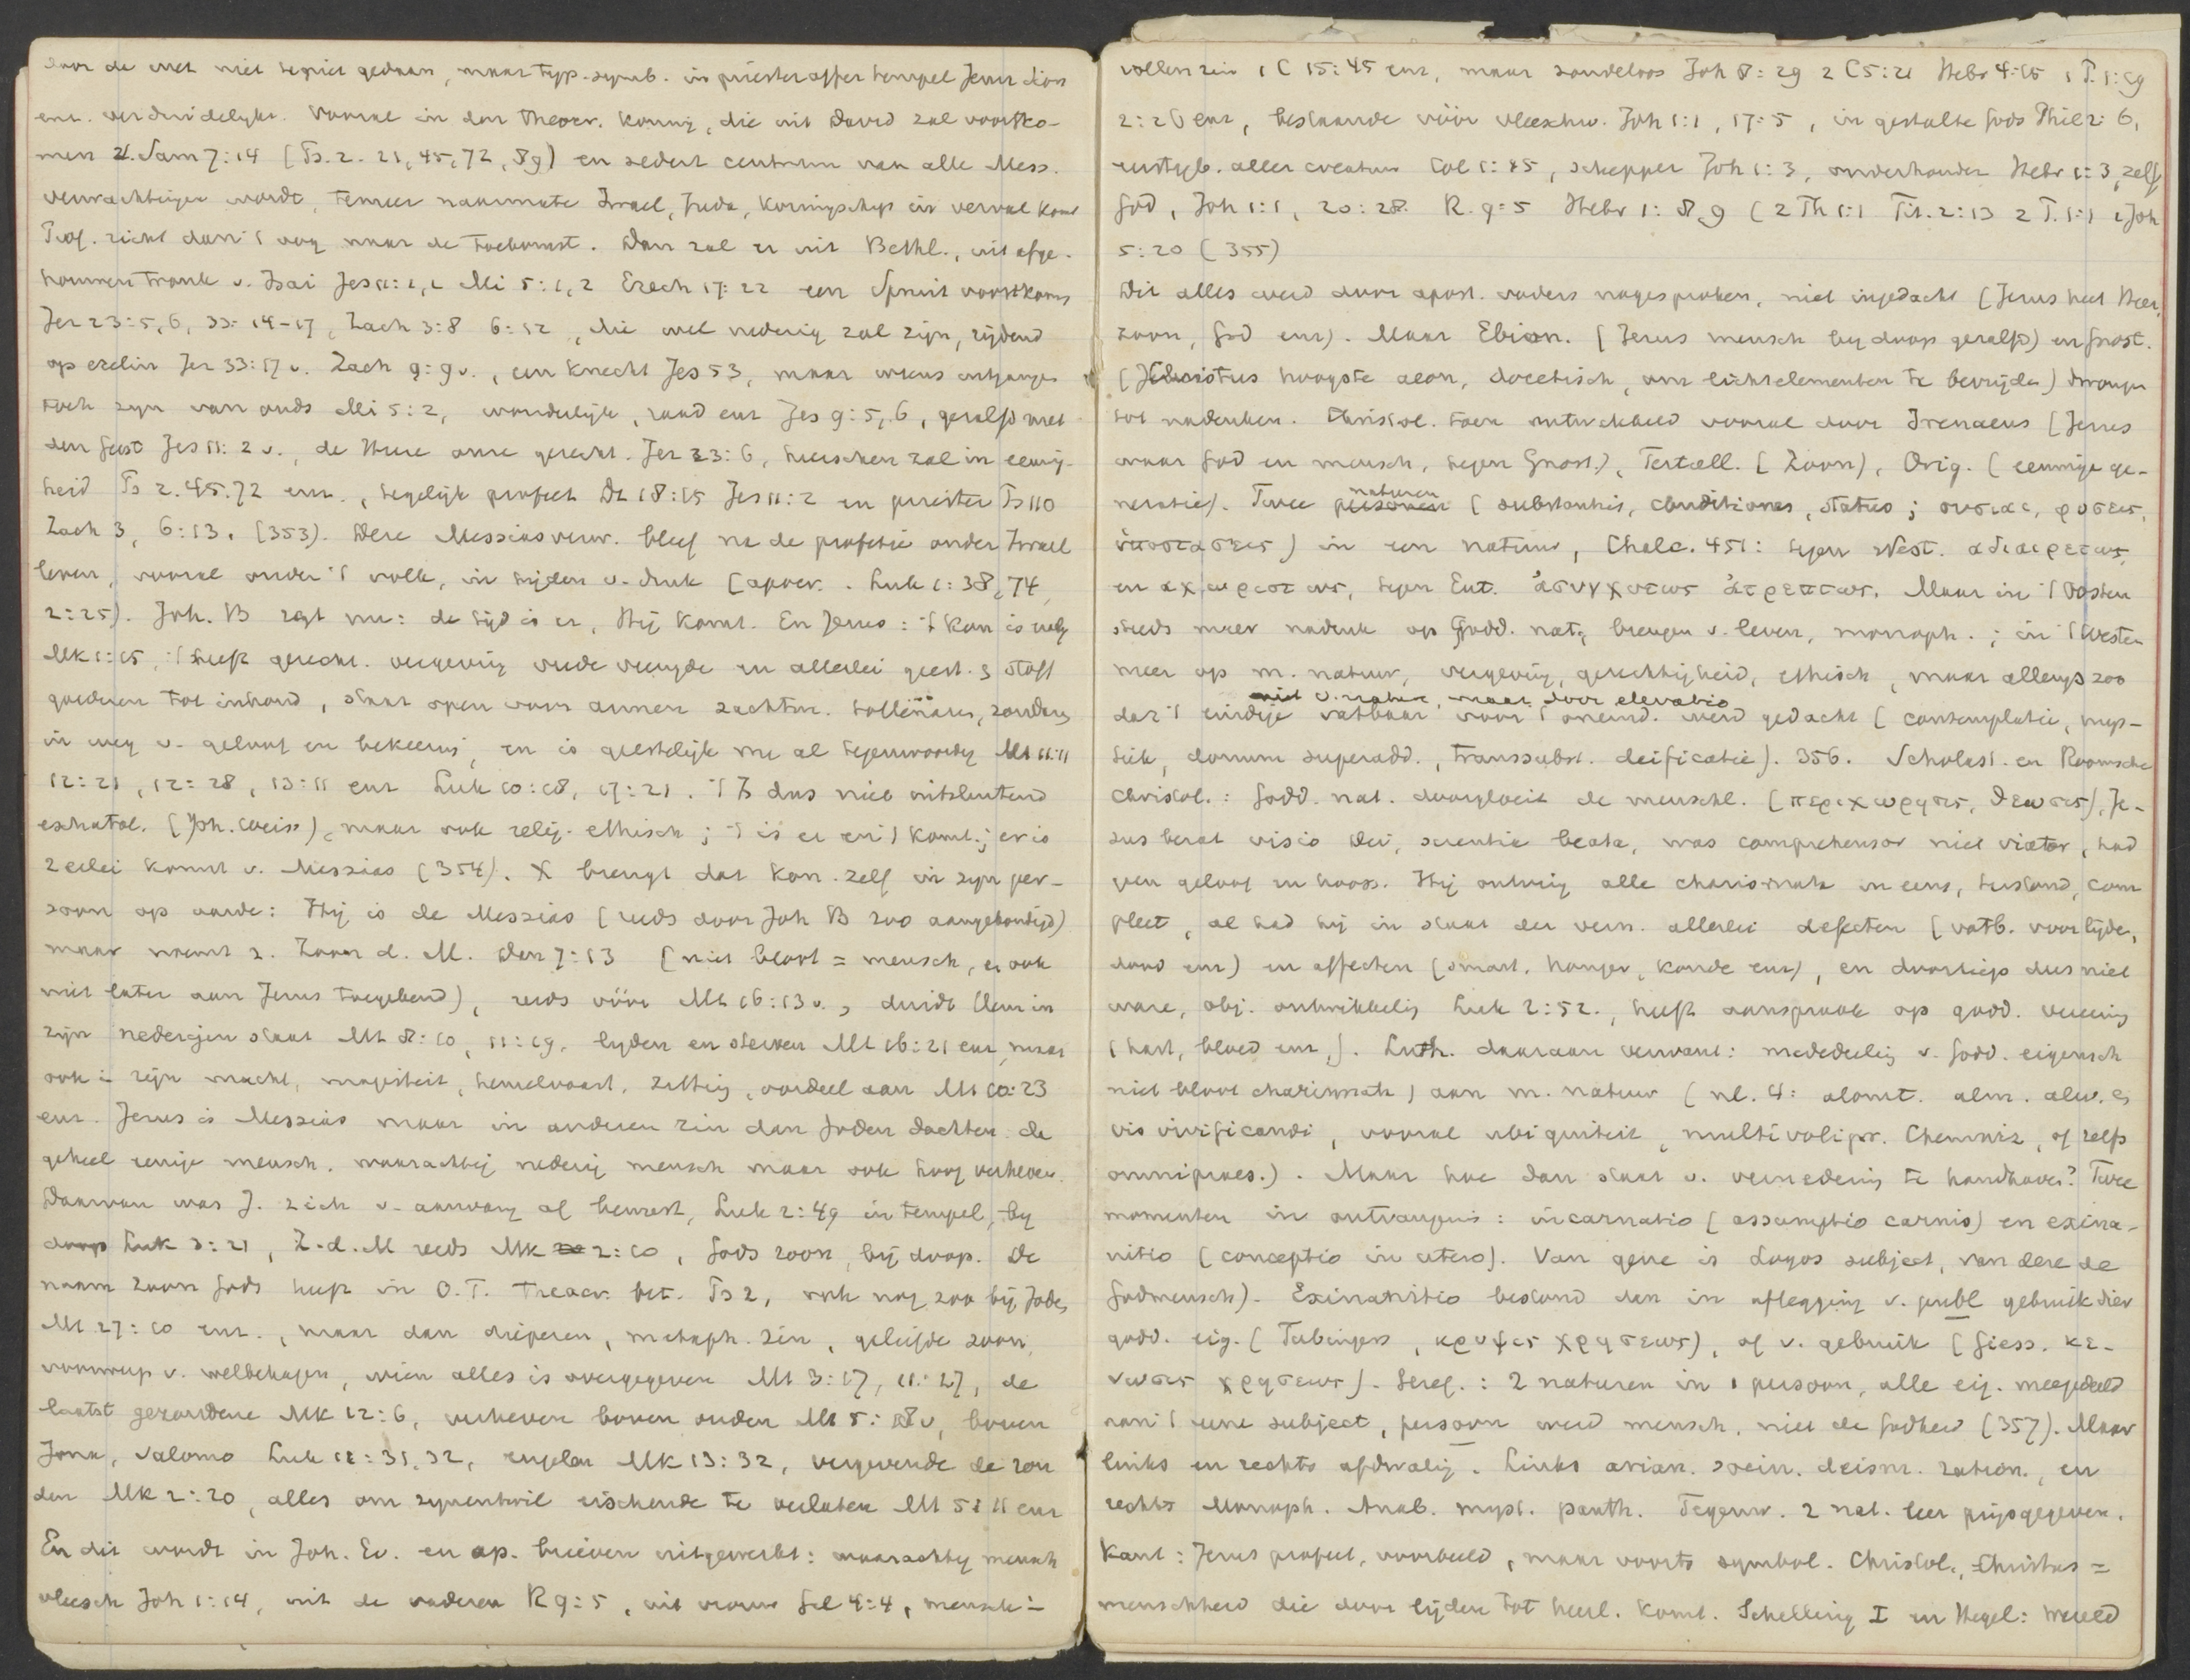 door de wet niet teniet gedaan, maar typ-symb. in priester offer tempel Jeruz. Sion
enz. verduidelykt. Vooral in den theocr. koning, die uit David zal voortko-
men 2. Sam 7:14 (Ps. 2. 21, 45, 72, 89) en sedert centrum van alle Mess.
verwachtingen wordt, temeer naarmate Israel, Juda, Koningschap in verval komt
Prof. richt dan 't oog naar de toekomst. Dan zal er uit Bethl., uit afge-
houwen tronk v. Isai Jes 11:1,2 Mi 5:1,2 Ezech 17:22 een Spruit voortkomen
Jer 23:5,6, 33:14-17, Zach 3:8 6:12, die wel nederig zal zijn, rijdend
op ezelin Jer 33:17 v. Zach 9:9 v., een Knecht Jes 53, maar wiens uitgangen
toch zyn van ouds Mi 5:2, wonderlijk, raad enz Jes 9:5,6, gezalfd met
den Geest Jes 11:2 v., de Heere onze gerecht. Jer 23:6, heerschen zal in eeuwig-
heid Ps 2. 45. 72 enz., tegelijk profeet Dt 18:15 Jes 11:2 en priester Ps 110
Zach 3, 6:13. (353). Deze Messiasverw. bleef na de profetie onder Israel
leven, vooral onder 't volk, in tijden v. druk (apocr. Luk 1:38, 74,
2:25). Joh. B zegt nu: de tijd is er, Hij komt. En Jezus: 't Kon is naby
Mk 1:15, 't heeft gerecht. vergeving vrede vreugde en allerlei geest. & stoff
goederen tot inhoud, staat open voor armen zachtm. tollenaars, zondaars
in weg v. geloof en bekeering, en is geestelijk nu al tegenwoordig Mt 11:11
12:21, 12:28, 13:11 enz Luk 10:18, 17:21. 't Is dus niet uitsluitend
eschatol. (Joh. Weiss), maar ook relig.-ethisch; 't is er en 't komt; er is
2erlei komst v. Messias (354). X brengt dat Kon. zelf in zyn per-
soon op aarde: Hij is de Messias (reeds door Joh B zoo aangekondigd)
maar noemt z. Zoon d. M. Dan 7:13 (niet bloot = mensch, en ook
niet later aan Jezus toegekend), reeds vóór Mt 16:13 v., duidt Hem in
zijn nedrigen staat Mt 8:20, 11:19, lyden en sterven Mt 16:21 enz, maar
ook in zijn macht, majesteit, hemelvaart, zitting, oordeel aan Mt 10:23
enz. Jezus is Messias maar in anderen zin dan Joden dachten: de
geheel eenige mensch, waarachtig nederig mensch maar ook hoog verheven.
Daarvan was J. zich v. aanvang af bewust, Luk 2:49 in tempel, by
doop Luk 3:21, Z.d.M reeds Mk 2:10, Gods zoon, bij doop. De
naam Zoon Gods heeft in O.T. theocr. bet. Ps 2, ook nog zoo bij Joden
Mt 27:40 enz., maar dan dieperen, metaph. zin, geliefde zoon,
voorwerp v. welbehagen, wien alles is overgegeven Mt 3:17, 11:27, de
laatst gezondene Mk 12:6, verheven boven ouden Mt 5:18 v, boven
Jona, Salomo Luk 11:31,32, engelen Mk 13:32, vergevende de zon
den Mk 2:20, alles om zynentwil eischende te verlaten Mt 5:11 enz
En dit wordt in Joh. Ev. en ap. brieven uitgewerkt: waarachtig mensch
vleesch Joh 1:14, uit de vaderen R 9:5, uit vrouw Gal 4:4, mensch in
vollen zin 1 C 15:45 enz, maar zondeloos Joh 8:29 2 C 5:21 Hebr 4:15 1 P. 1:19
2:26 enz, bestaande vóór vleeschw. Joh 1:1, 17:5, in gestalte Gods Phil 2:6,
eerstgeb. aller creatuur Col 1:15, schepper Joh 1:3, onderhouder Hebr 1:3, zelf
God, Joh 1:1, 20:28. R. 9:5 Hebr 1:8,9 (2 Th 1:1 Tit. 2:13 2 P. 1:1 1 Joh
5:20 (355)
Dit alles werd door apost. vaders nagesproken, niet ingedacht (Jezus heet Heer,
zoon, God enz). Maar Ebion. (Jezus mensch by doop gezalfd) en Gnost.
(Christus hoogste aeon, docetisch, om lichtelementen te bevrijden) drongen
tot nadenken. Christol. toen ontwikkeld vooral door Irenaeus (Jezus
waar God en mensch, tegen Gnost.), Tertull. (Zoon), Orig. (eeuwige ge-
neratie). Twee personen naturen (substantiis, conditiones, status; ουσιαι, φυσεις,
ὑποστασεις) in een natuur, Chalc. 451: tegen Nest. αδιαιρετως,
en αχωριστως, tegen Eut. ἀσυγχυτως ἀτρεπτως. Maar in 't Oosten
steeds meer nadruk op Godd. nat., brengen v. leven, monoph.; in 't Westen
meer op m. natuur, vergeving, gerechtigheid, ethisch, maar allengs zoo
niet v. natuur, maar door elevatio
dat 't eindige vatbaar voor 't oneind. werd gedacht (contemplatie, mys-
tiek, donum superadd., transsubst. deificatie). 356. Scholast. en Roomsche
Christol.: Godd. nat. doorgloeit de menschl. (περιχωρησις, θεωσις), Je-
zus bezat visio Dei, scientia beata, was comprehensor niet viator, had
geen geloof en hoop. Hij ontving alle charismata ineens, terstond, com
pleet, al had hij in staat der vern. allerlei defecten (vatb. voor lijden,
dood enz) en affecten (smart, honger, koude enz), en doorliep dus niet
ware, obj. ontwikkeling Luk 2:52., heeft aanspraak op godd. vereering
(hart, bloed enz). Luth. daaraan verwant: mededeeling v. Godd. eigensch
niet bloot charismata) aan m. natuur (nl. 4: alomt. alm. alw. &
vis vivificandi, vooral ubiquiteit, multivolipr. Chemniz, of zelfs
omnipraes.). Maar hoe dan staat v. vernedering te handhaven? Twee
momenten in ontvangenis: incarnatio (assumptio carnis) en exina-
nitio (conceptio in utero). Van gene is Logos subject, van deze de
Godmensch). Exinanitio bestond dan in aflegging v. publ gebruik dier
godd. eig. (Tubingers, κρυψις χρησεως), of v. gebruik (Giess. κε-
νωσις χρησεως). Geref.: 2 naturen in 1 persoon, alle eig. meegedeeld
aan 't eene subject, persoon werd mensch, niet de Godheid (357). Maar
links en rechts afdwaling. Links arian. socin. deism. ration., en
rechts Monoph. Anab. myst. panth. Tegenw. 2 nat. leer prijsgegeven.
Kant: Jezus profeet, voorbeeld, maar voorts symbol. Christol., Christus =
menschheid die door lijden tot heerl. komt. Schelling I en Hegel: wereld